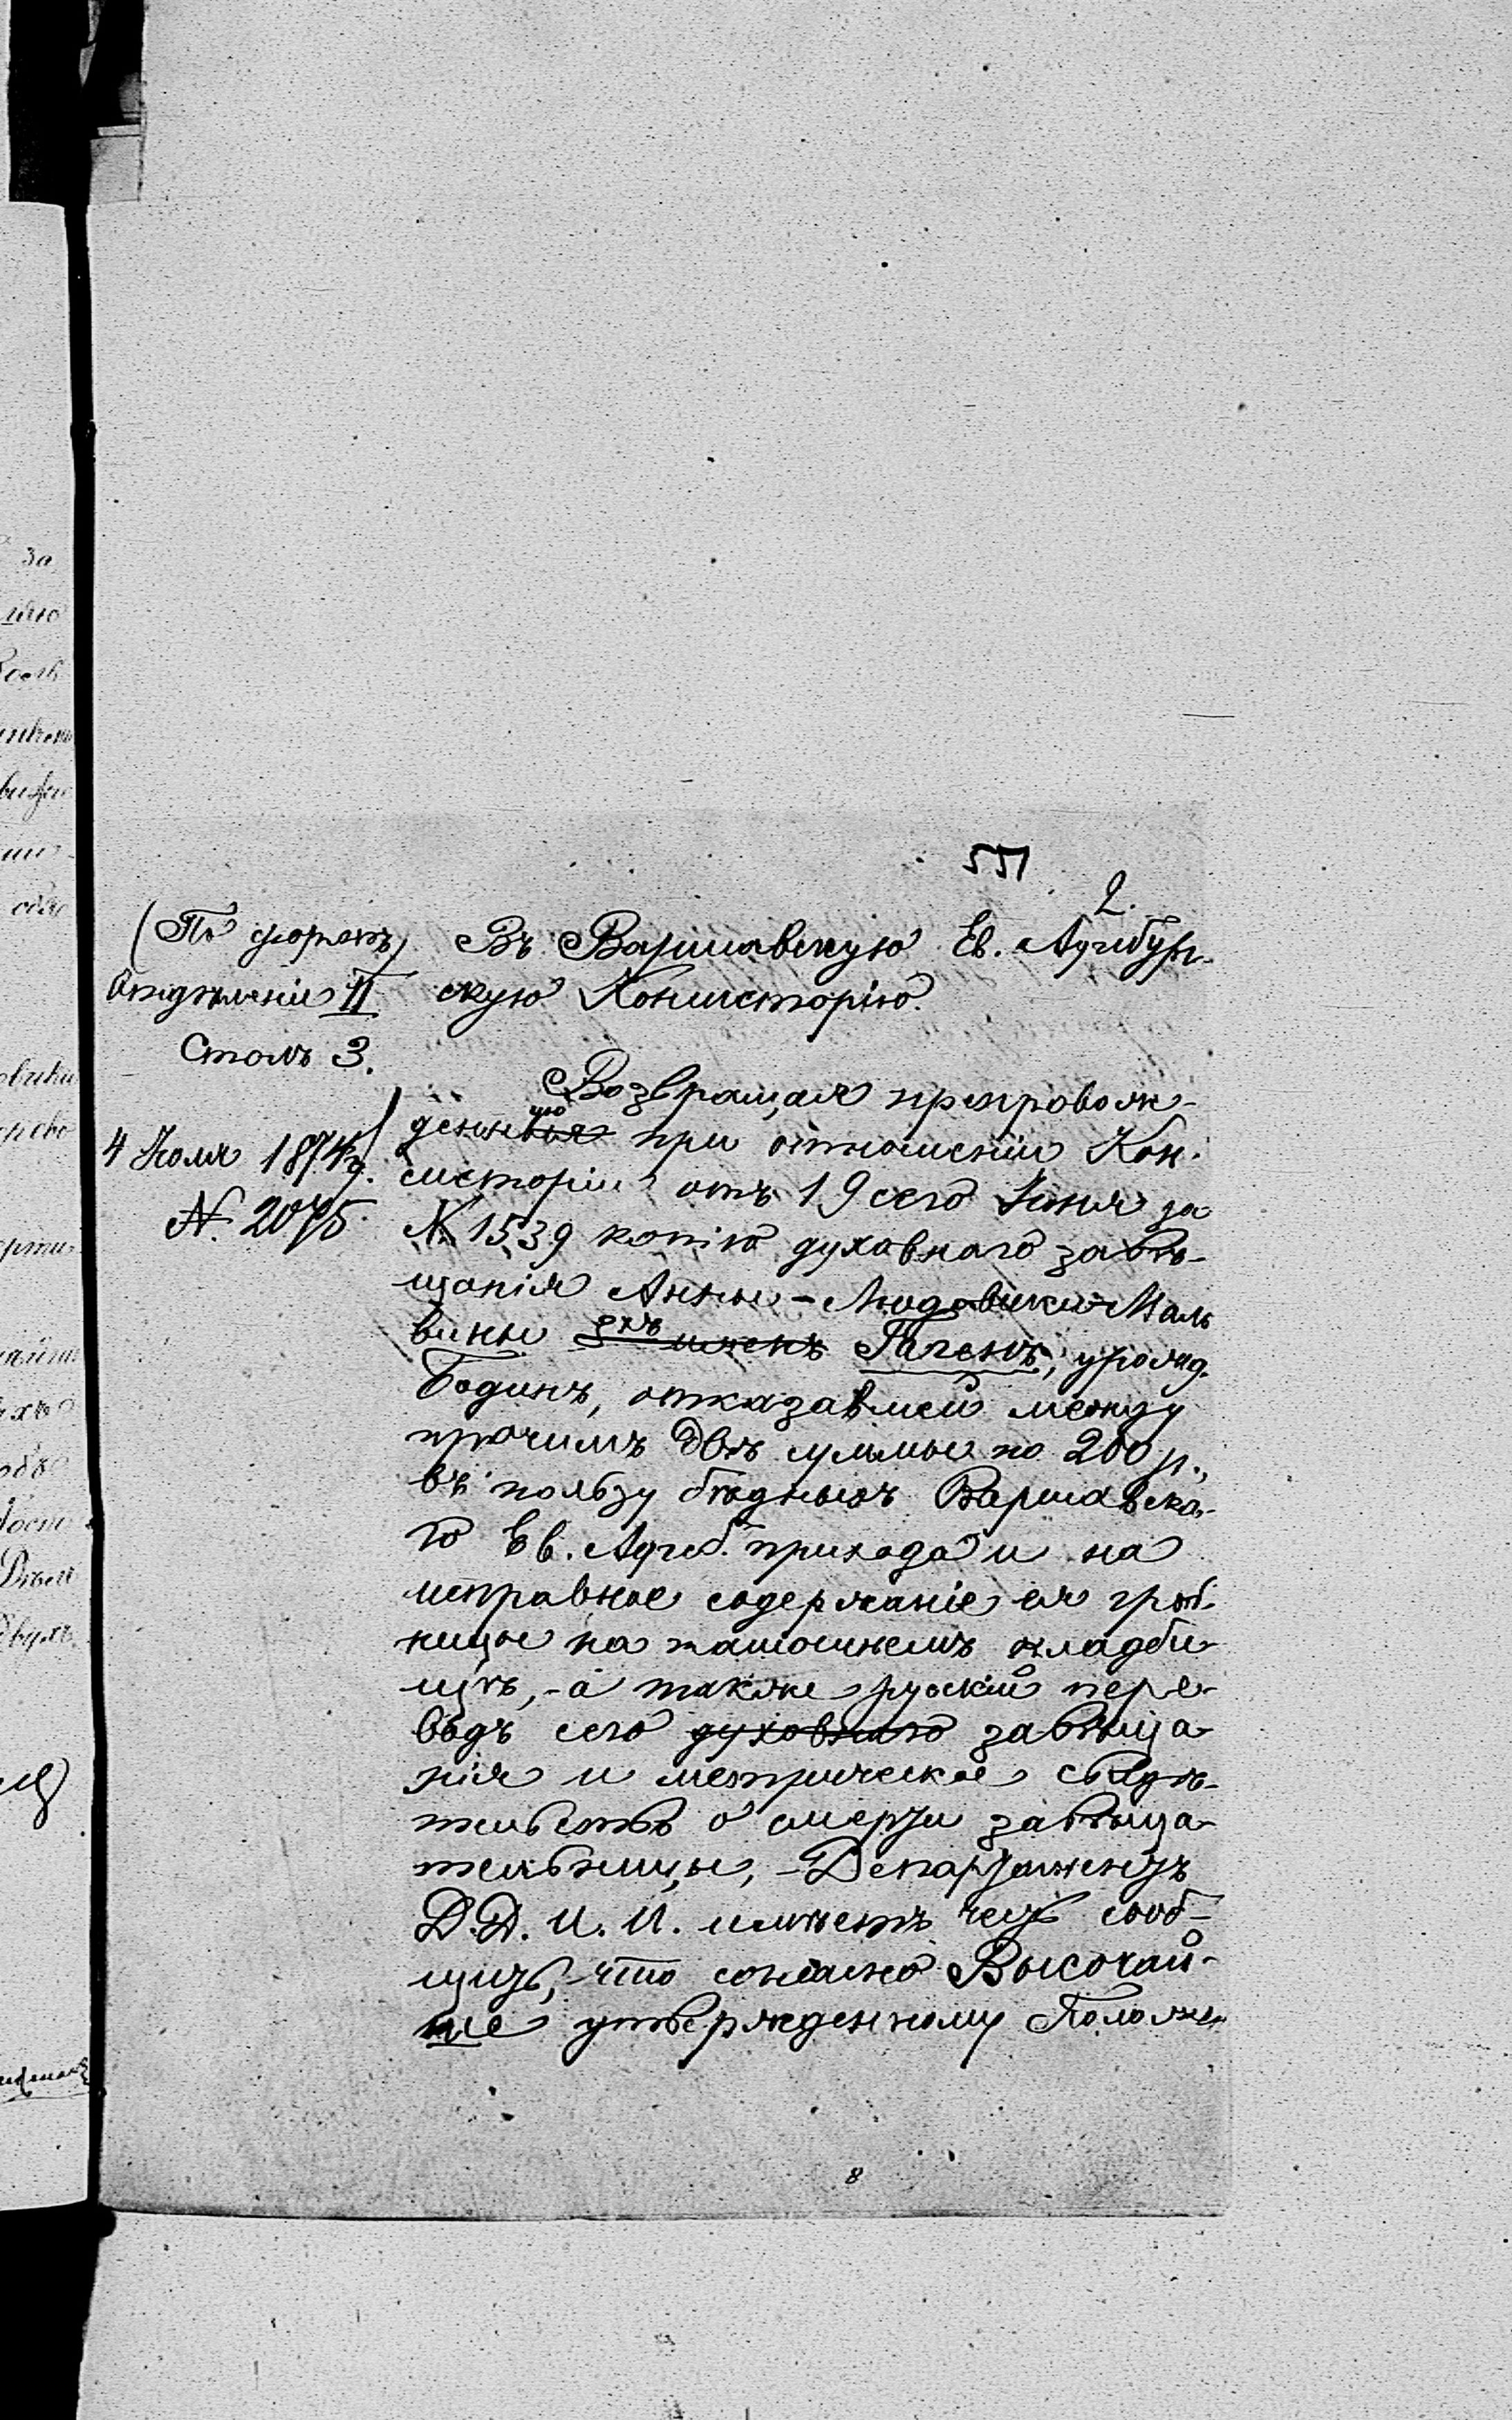 551
2.
(По формѣ)
Отдѣленіе II
Столъ 3.
4 Іюля 1874 г.
N. 2075
Въ Варшавскую Ев. Аугсбург-
скую Консисторію.
Возвращая препровож-
денную при отношеніи Кон-
систоріи отъ 19 сего Іюня за
N 1539 копію духовнаго завѣ-
щанія Анны-Людовики-Маль
вины трехъ именъ урожд.
Бодинъ, отказавшей между
прочимъ двѣ суммы по 200 р.,
въ пользу бѣдныхъ Варшавска-
го Ев. Аугсб. прихода и на
исправное содержаніе ея гроб-
ницы на тамошнемъ кладби-
щѣ,-а также рускій пере-
водъ сего духовнаго завѣща-
нія и метрическое свидѣ-
тельство о смерти завѣща-
тельницы,-Департаментъ
Д.Д. И. И. имѣетъ честь сооб-
щить, что согласно Высочай-
ше утвержденному Положе-
8